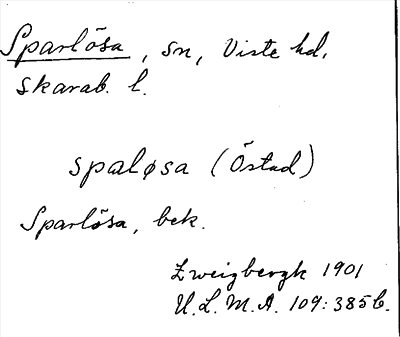 Sparlösa, sn, Viste hd,
Skarab. l.
spaløsa (Östad)
Sparlösa, bek.
Zweigbergk 1901
U.L.M.A. 109:385 b.